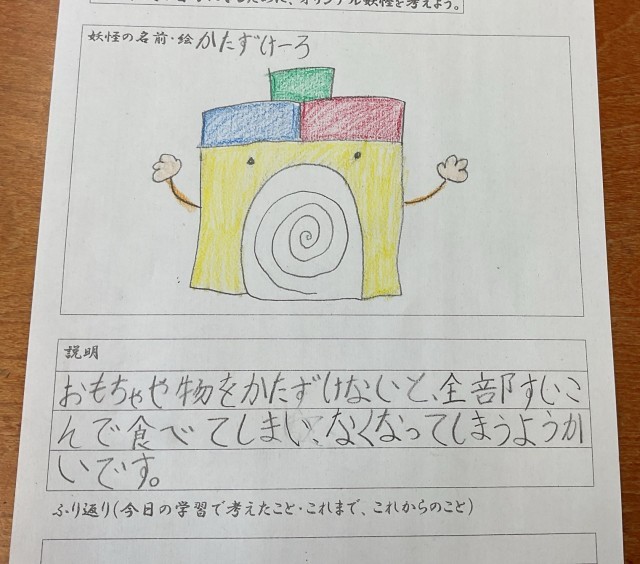 オリジナル妖怪を考えよう。
妖怪の名前・絵 かたずけーろ
説明
おもちゃや物をかたずけないと、全部すいこ
んで食べてしまい、なくなってしまうようか
いです。
ふり返り(今日の学習で考えたこと・これまで、これからのこと)